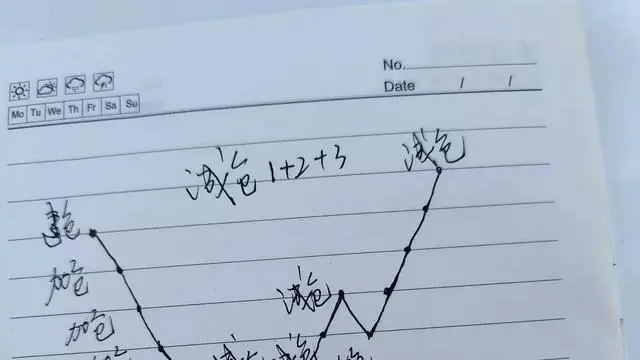 No.
Date / /
Mo Tu We Th Fr Sa Su
减仓 1+2+3
减仓
建仓
加仓
减仓
加仓
减仓 减仓